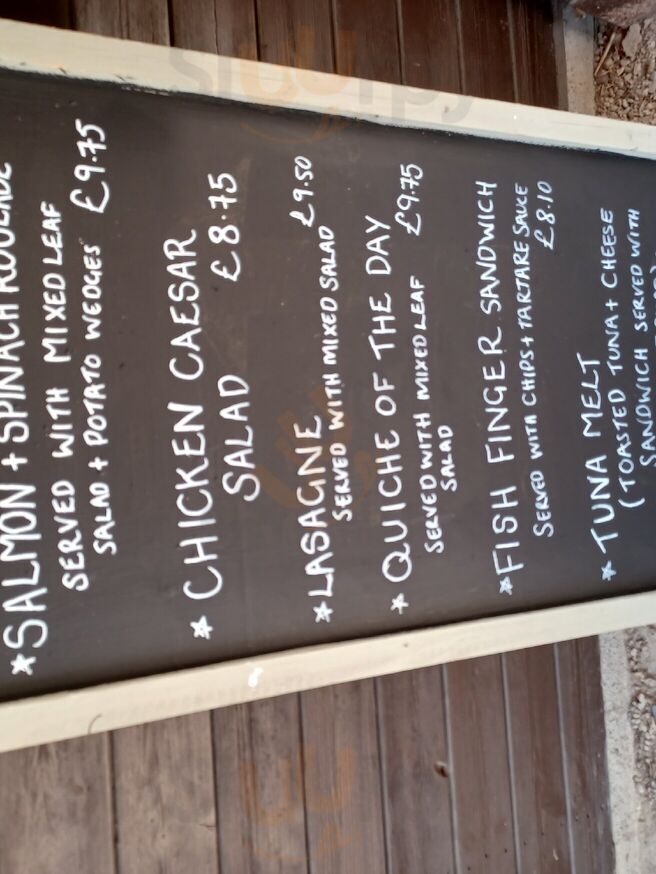 *SALMON + SPINACH ROULADE
SERVED WITH MIXED LEAF
SALAD + POTATO WEDGES £9.75
* CHICKEN CAESAR
SALAD £8.75
*LASAGNE
SERVED WITH MIXED SALAD £9.50
* QUICHE OF THE DAY
SERVED WITH MIXED LEAF £9.75
SALAD
*FISH FINGER SANDWICH
SERVED WITH CHIPS + TARTARE SAUCE
£8.10
* TUNA MELT
(TOASTED TUNA + CHEESE
SANDWICH SERVED WITH